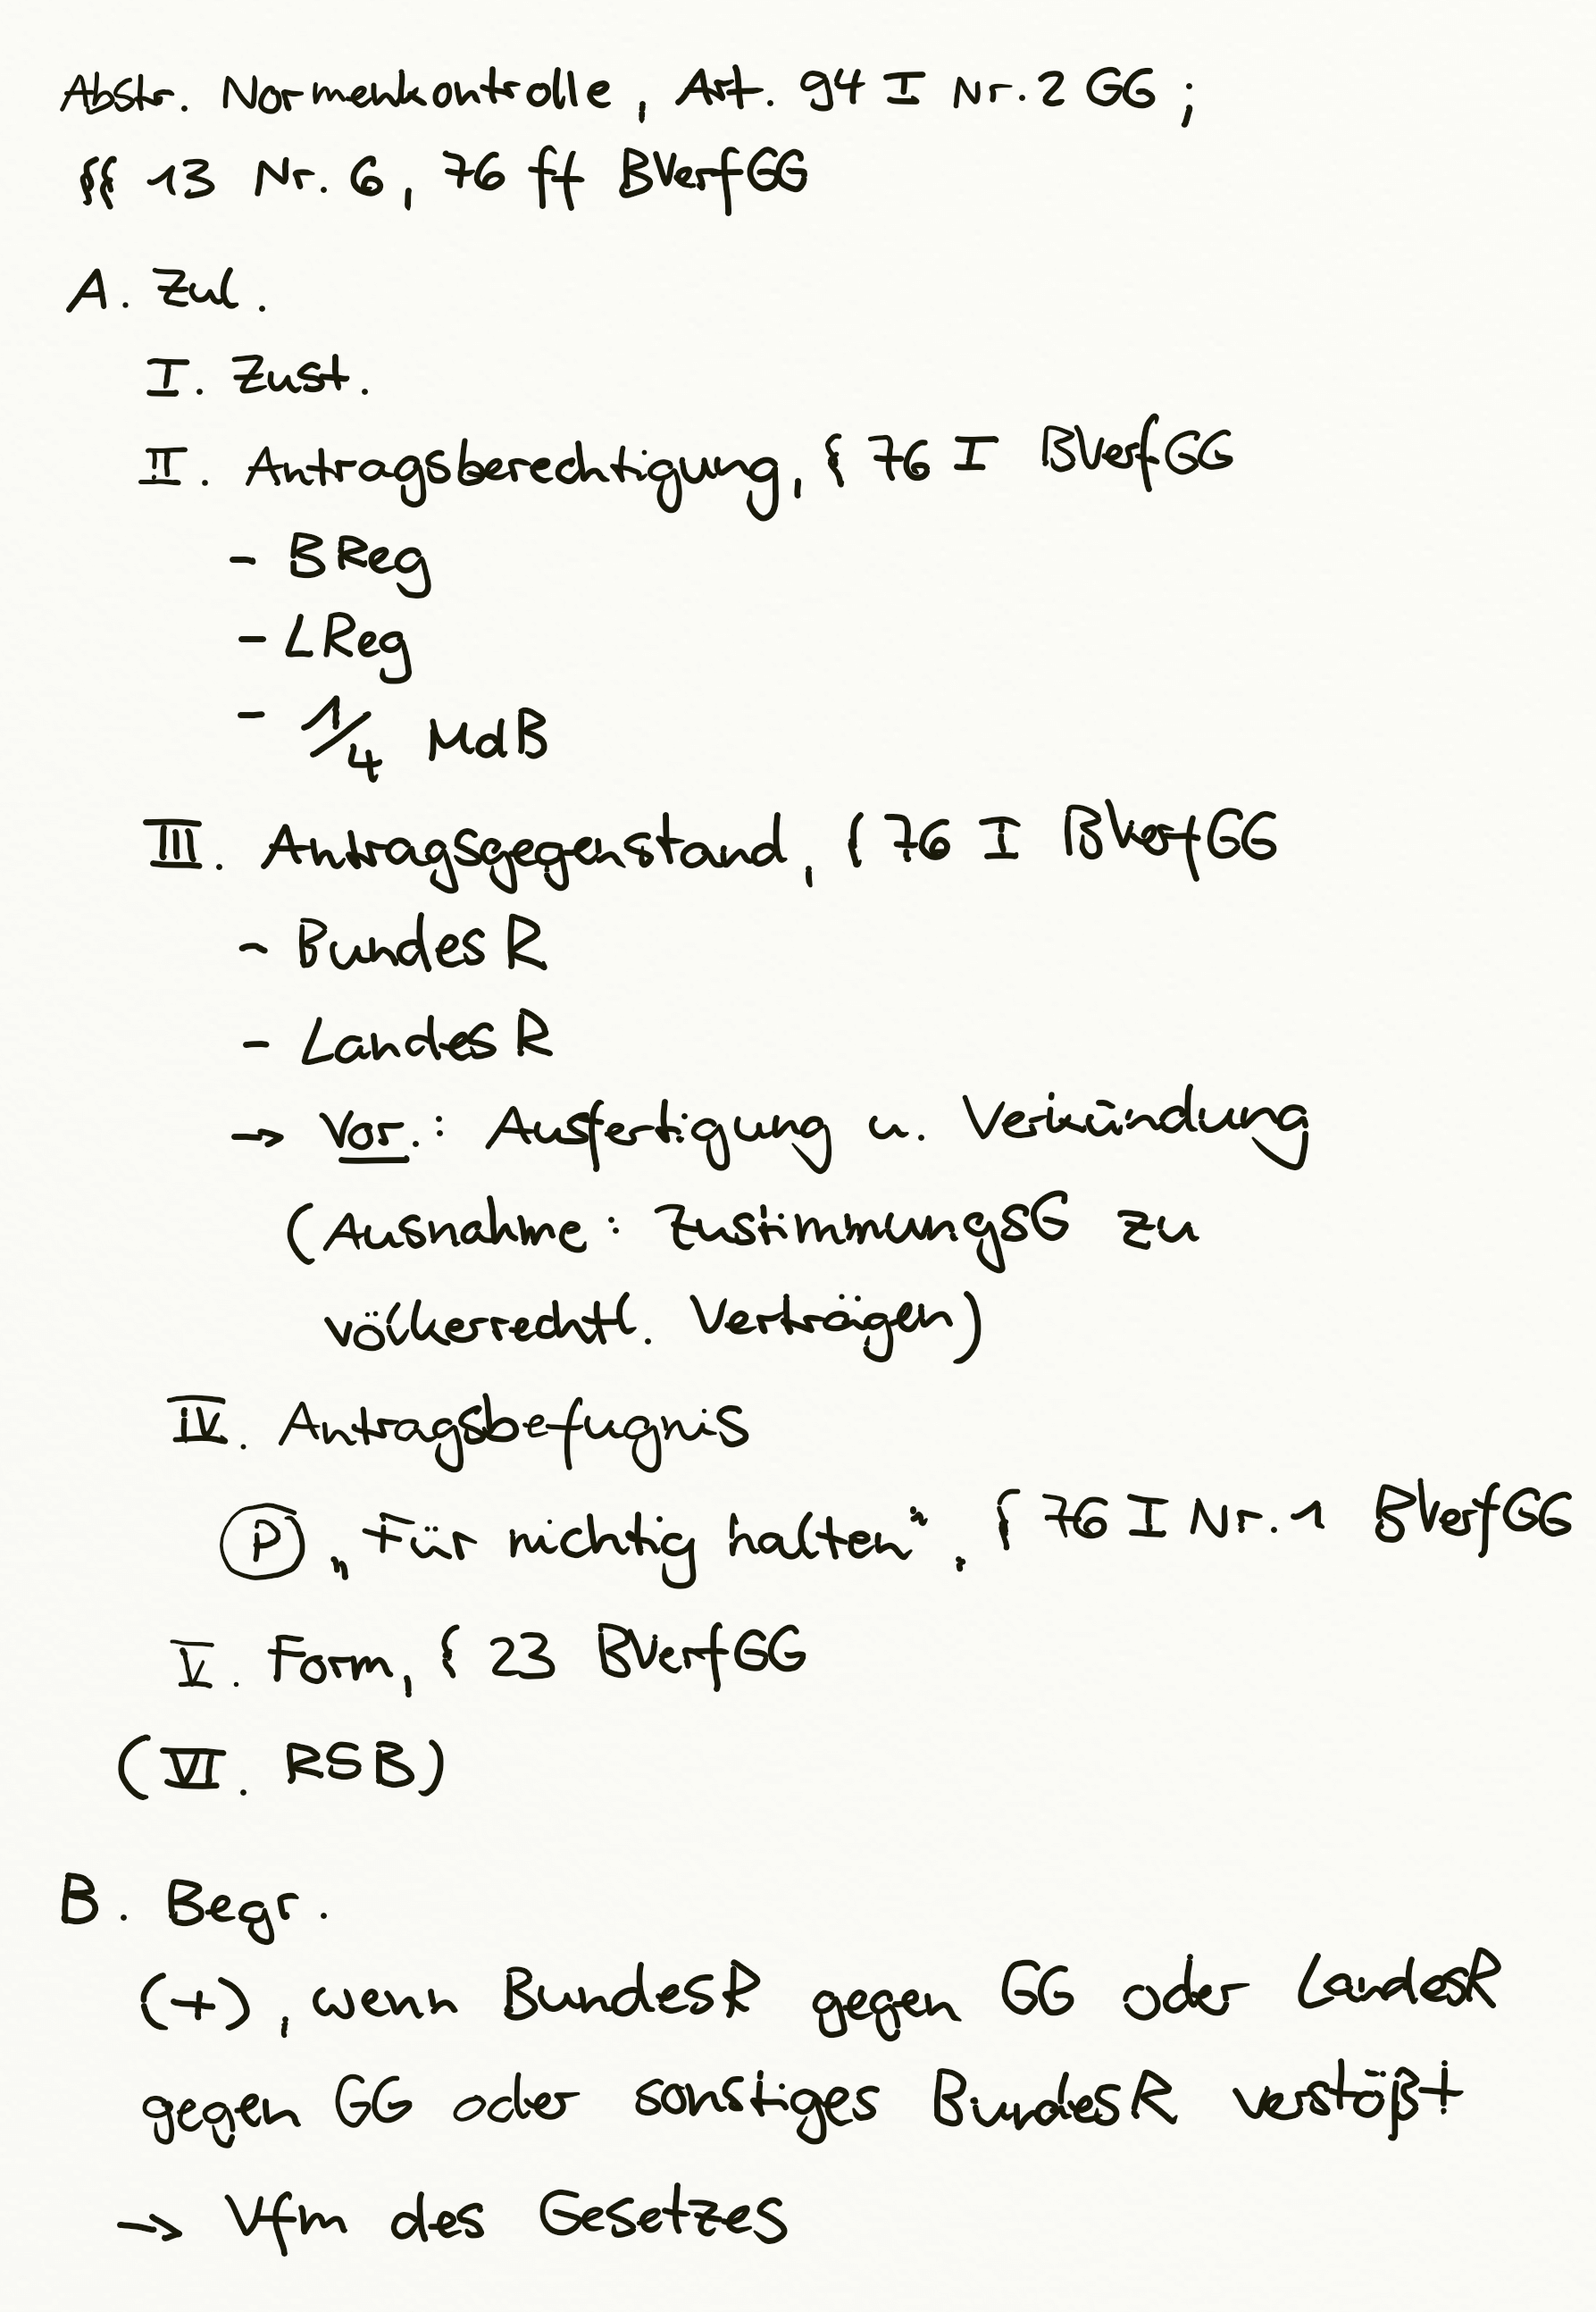 Abstr. Normenkontrolle, Art. 94 I Nr. 2 GG;
§§ 13 Nr. 6, 76 ff BVerfGG
A. Zul.
I. Zust.
II. Antragsberechtigung, § 76 I BVerfGG
- BReg
- LReg
- 1/4 MdB
III. Antragsgegenstand, § 76 I BVerfGG
- BundesR
- LandesR
→ Vor.: Ausfertigung u. Verkündung
(Ausnahme: ZustimmungsG zu
völkerrechtl. Verträgen)
IV. Antragsbefugnis
(P) „Für nichtig halten“, § 76 I Nr. 1 BVerfGG
V. Form, § 23 BVerfGG
(VI. RSB)
B. Begr.
(+), wenn BundesR gegen GG oder LandesR
gegen GG oder sonstiges BundesR verstößt
→ Vfm des Gesetzes